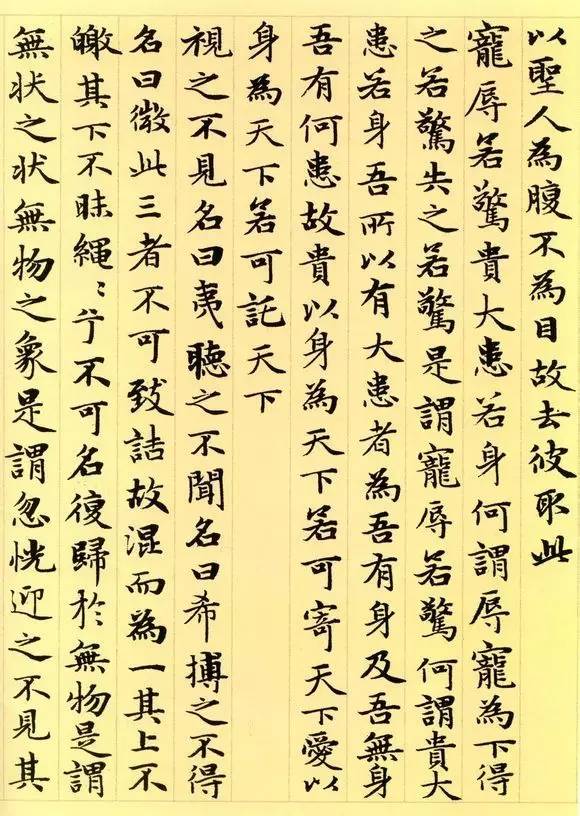 以聖人為腹不為目故去彼取此
寵辱若驚貴大患若身何謂辱寵為下得
之若驚失之若驚是謂寵辱若驚何謂貴大
患若身吾所以有大患者為吾有身及吾無身
吾有何患故貴以身為天下若可寄天下愛以
身為天下若可託天下
視之不見名曰夷聴之不聞名曰希搏之不得
名曰微此三者不可致詰故混而為一其上不
皦其下不昧繩〻兮不可名復歸於無物是謂
無状之状無物之象是謂忽恍迎之不見其